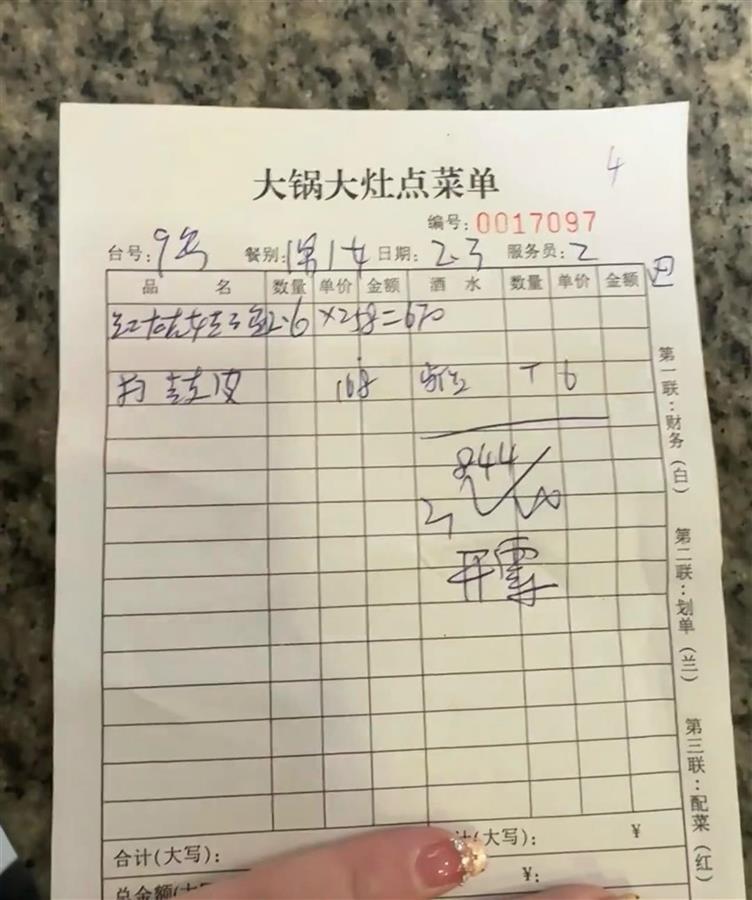 大锅大灶点菜单
4
编号: 0017097
台号: 9号 餐别: 日期: 2.3 服务员: 2
品 名 数量 单价 金额 酒 水 数量 单价 金额
2.6 ×258=670
皮 168 6
844
合计(大写): 计(大写): ¥
总金额(大 ¥:
第一联:财务(白)
第二联:划单(兰)
第三联:配菜(红)